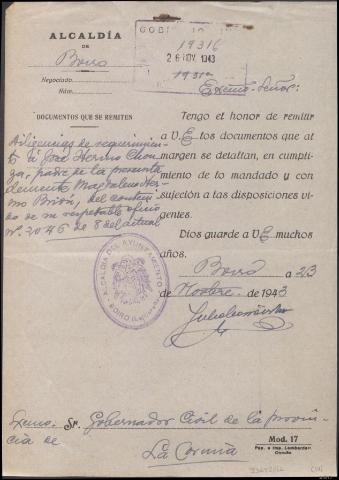 ALCALDÍA
DE
Boiro
Negociado
Núm.
GOBI
19316
26 NOV. 1943
Excmo. Señor:
DOCUMENTOS QUE SE REMITEN
Diligencias de requerimien-
to a José Hermo Chou-
za, padre de la presunta
demente Magdalena Her-
mo Brión, del conteni-
do de su respetable oficio
nº 2046 de 8 del actual
Tengo el honor de remitir
a V.E. los documentos que al
margen se detallan, en cumpli-
miento de lo mandado y con
sujeción a las disposiciones vi-
gentes.
Dios guarde a V.E. muchos
años.
Boiro a 23
de Novbre de 1943
ALCALDIA DEL AYUNTAMIENTO
BOIRO (La Coruña)
Excmo. Sr. Gobernador Civil de la provin-
cia de
La Coruña
Mod. 17
Pap. e Imp. Lombardero
Coruña